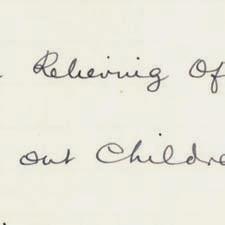 Relieving Of
out Childre